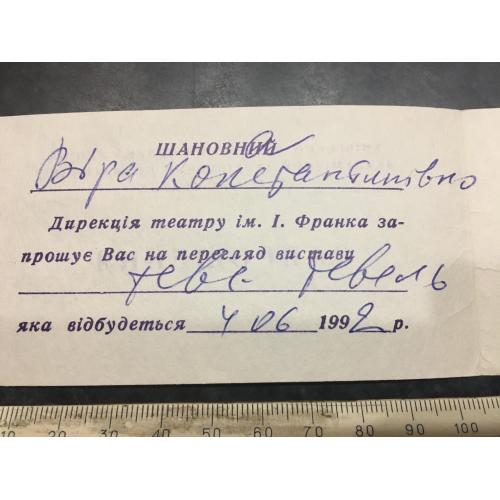 ШАНОВНа
Віра Константинівно
Дирекція театру ім. І. Франка за-
прошує Вас на перегляд вистави
Теве Тевель
яка відбудеться 4 06 1992 р.
10 20 30 40 50 60 70 80 90 100